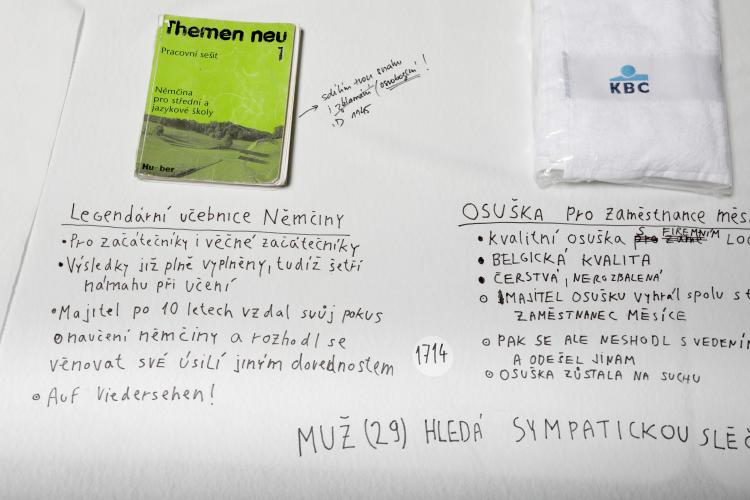 Themen neu
1
Pracovní sešit
Němčina
pro střední a
jazykové školy
Hueber
sdílím tvou snahu
i zklamání / osvobození!
:D 1945
KBC
Legendární učebnice Němčiny
• Pro začátečníky i věčné začátečníky
• Výsledky již plně vyplněny, tudíž šetří
námahu při učení
• Majitel po 10 letech vzdal svůj pokus
o naučení němčiny a rozhodl se
věnovat své úsilí jiným dovednostem
• Auf Viedersehen!
1714
OSUŠKA pro zaměstnance měsí
• kvalitní osuška s FIREMNÍM LOG
• BELGICKÁ KVALITA
• ČERSTVÁ, NEROZBALENÁ
• MAJITEL OSUŠKU VYHRÁL SPOLU S T
ZAMĚSTNANEC MĚSÍCE
• PAK SE ALE NESHODL S VEDENÍM
A ODEŠEL JINAM
• OSUŠKA ZŮSTALA NA SUCHU
MUŽ (29) HLEDÁ SYMPATICKOU SLEČ